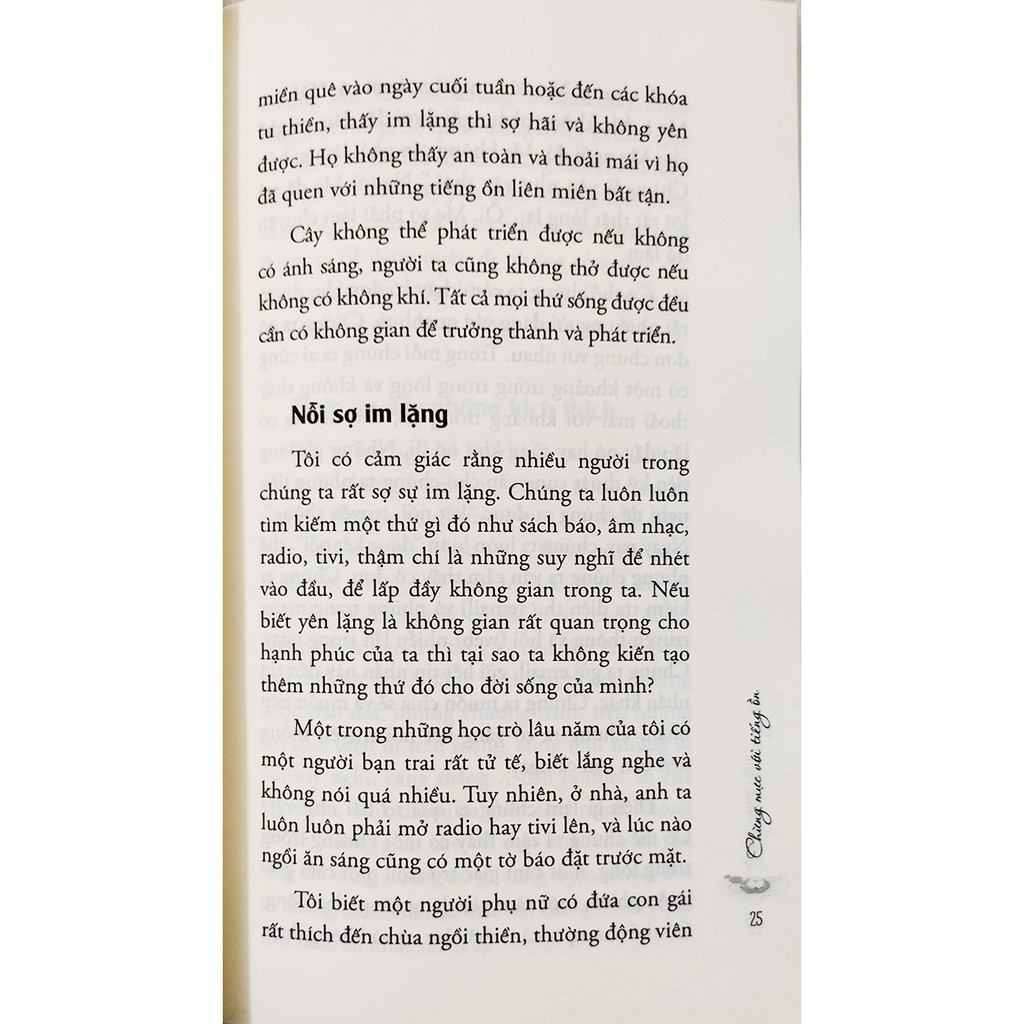 miền quê vào ngày cuối tuần hoặc đến các khóa
tu thiền, thấy im lặng thì sợ hãi và không yên
được. Họ không thấy an toàn và thoải mái vì họ
đã quen với những tiếng ồn liên miên bất tận.
Cây không thể phát triển được nếu không
có ánh sáng, người ta cũng không thở được nếu
không có không khí. Tất cả mọi thứ sống được đều
cần có không gian để trưởng thành và phát triển.
Nỗi sợ im lặng
Tôi có cảm giác rằng nhiều người trong
chúng ta rất sợ sự im lặng. Chúng ta luôn luôn
tìm kiếm một thứ gì đó như sách báo, âm nhạc,
radio, tivi, thậm chí là những suy nghĩ để nhét
vào đầu, để lấp đầy không gian trong ta. Nếu
biết yên lặng là không gian rất quan trọng cho
hạnh phúc của ta thì tại sao ta không kiến tạo
thêm những thứ đó cho đời sống của mình?
Một trong những học trò lâu năm của tôi có
một người bạn trai rất tử tế, biết lắng nghe và
không nói quá nhiều. Tuy nhiên, ở nhà, anh ta
luôn luôn phải mở radio hay tivi lên, và lúc nào
ngồi ăn sáng cũng có một tờ báo đặt trước mặt.
Tôi biết một người phụ nữ có đứa con gái
rất thích đến chùa ngồi thiền, thường động viên
Chừng mực với tiếng ồn
25